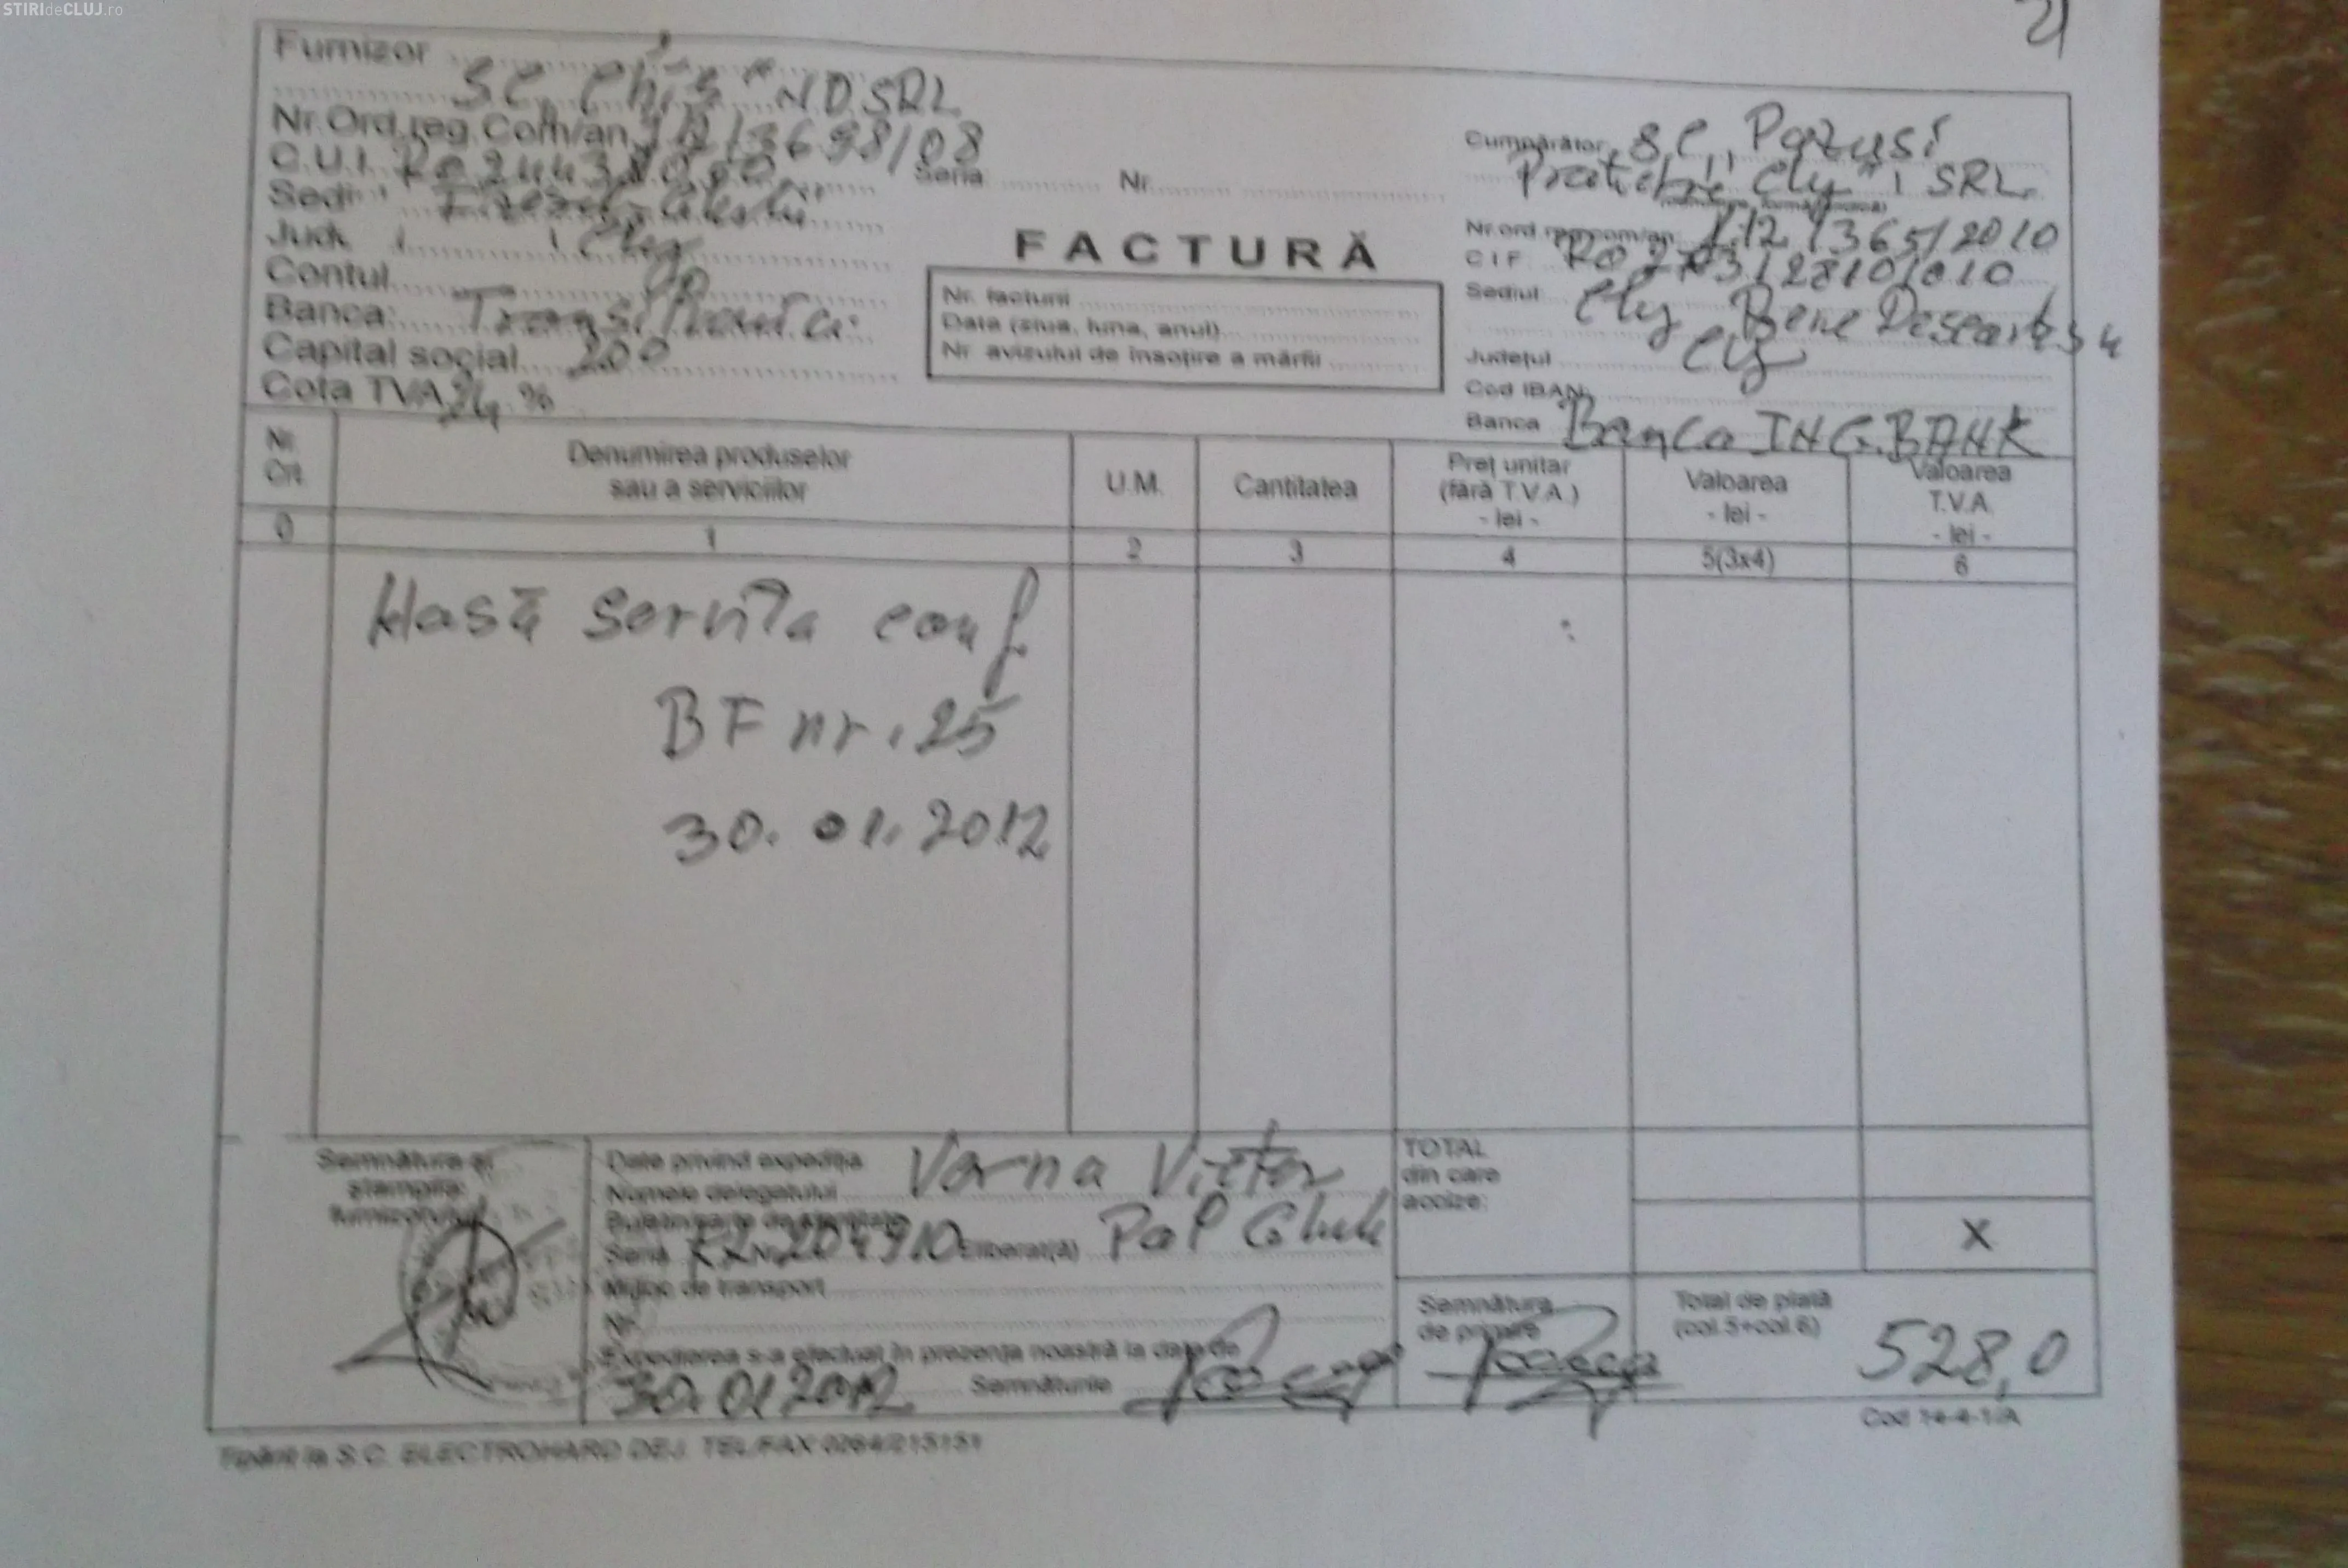 STIRIdeCLUJ.ro
21
Furnizor
SC "Chiș" ND SRL
Nr.Ord.reg.Com/an J12/3698/08
C.U.I.
Seria Nr.
Sediul
Jud. Cluj
Contul
Banca: Transilvania
Capital social 200
Cota TVA 24 %
FACTURĂ
Nr. facturii
Data (ziua, luna, anul)
Nr. avizului de însoțire a mărfii
Cumpărător SC
Cluj" SRL
Nr.ord.reg.com/an J12/365/2010
C I F
Sediul Cluj Rene Descartes
Județul Cluj
Cod IBAN
Banca Banca ING.BANK
Nr. Crt.
Denumirea produselor
sau a serviciilor
U.M.
Cantitatea
Preț unitar
(fără T.V.A.)
- lei -
Valoarea
- lei -
Valoarea
T.V.A.
- lei -
0 1 2 3 4 5(3x4) 6
Masă servita conf.
BF nr. 25
30.01.2012
Semnătura și
ștampila
furnizorului
Date privind expediția
Numele delegatului Varna Victor
Buletin/carte de identitate
Seria Nr. 204910 Eliberat(ă)
Mijloc de transport
Nr.
Expedierea s-a efectuat în prezența noastră la data de
30.01.2012 Semnăturile
TOTAL
din care
accize:
X
Semnătura
de primire
Total de plată
(col.5+col.6)
528,0
Tipărit la S.C. ELECTROHARD DEJ. TEL/FAX 0264/215151
Cod 14-4-1/A